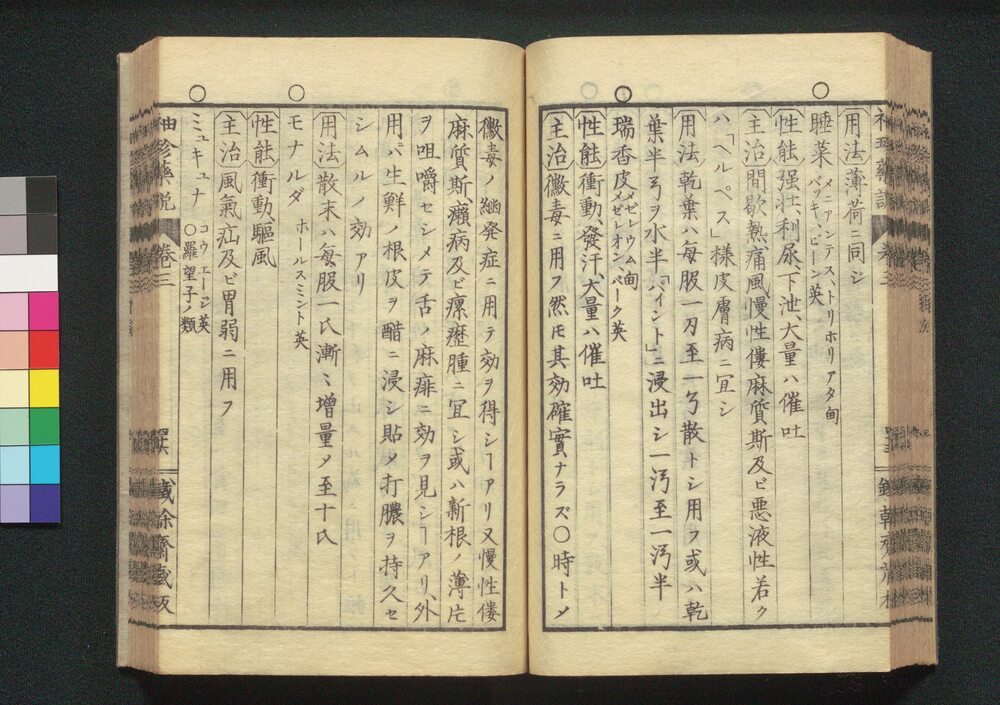 用法薄荷ニ同ジ
睡菜 メニアンテス、トリホリアタ甸
バッキ、ビーン英
性能强壮、利尿、下泄、大量ハ催吐
主治間歇熱痛風慢性僂麻質斯及ビ悪液性若ク
ハ「ヘルペス」様皮膚病ニ宜シ
用法乾葉ハ毎服一刃至一弓散トシ用フ或ハ乾
葉半弓ヲ水半「パイント」ニ浸出シ一汚至一汚半
瑞香皮 メゼレウム甸
メゼレオン、バーク英
性能衝動、發汗、大量ハ催吐
主治黴毒ニ用フ然モ其効確實ナラズ〇時トメ
黴毒ノ継発症ニ用テ効ヲ得シヿアリ又慢性僂
麻質斯、癩病及ビ瘰癧腫ニ宜シ或ハ新根ノ薄片
ヲ咀嚼セシメテ舌ノ麻痱ニ効ヲ見シヿアリ、外
用パ生鮮ノ根皮ヲ醋ニ浸シ貼メ打膿ヲ持久セ
シムルノ効アリ
用法散末ハ毎服一氏漸ミ増量メ至十氏
モナルダ ホールスミント英
性能衝動、驅風
主治風氣疝及ビ胃弱ニ用フ
ミュキュナ コウエージ英
〇羅望子ノ類
袖珍藥説 卷三
蔵餘齋蔵版